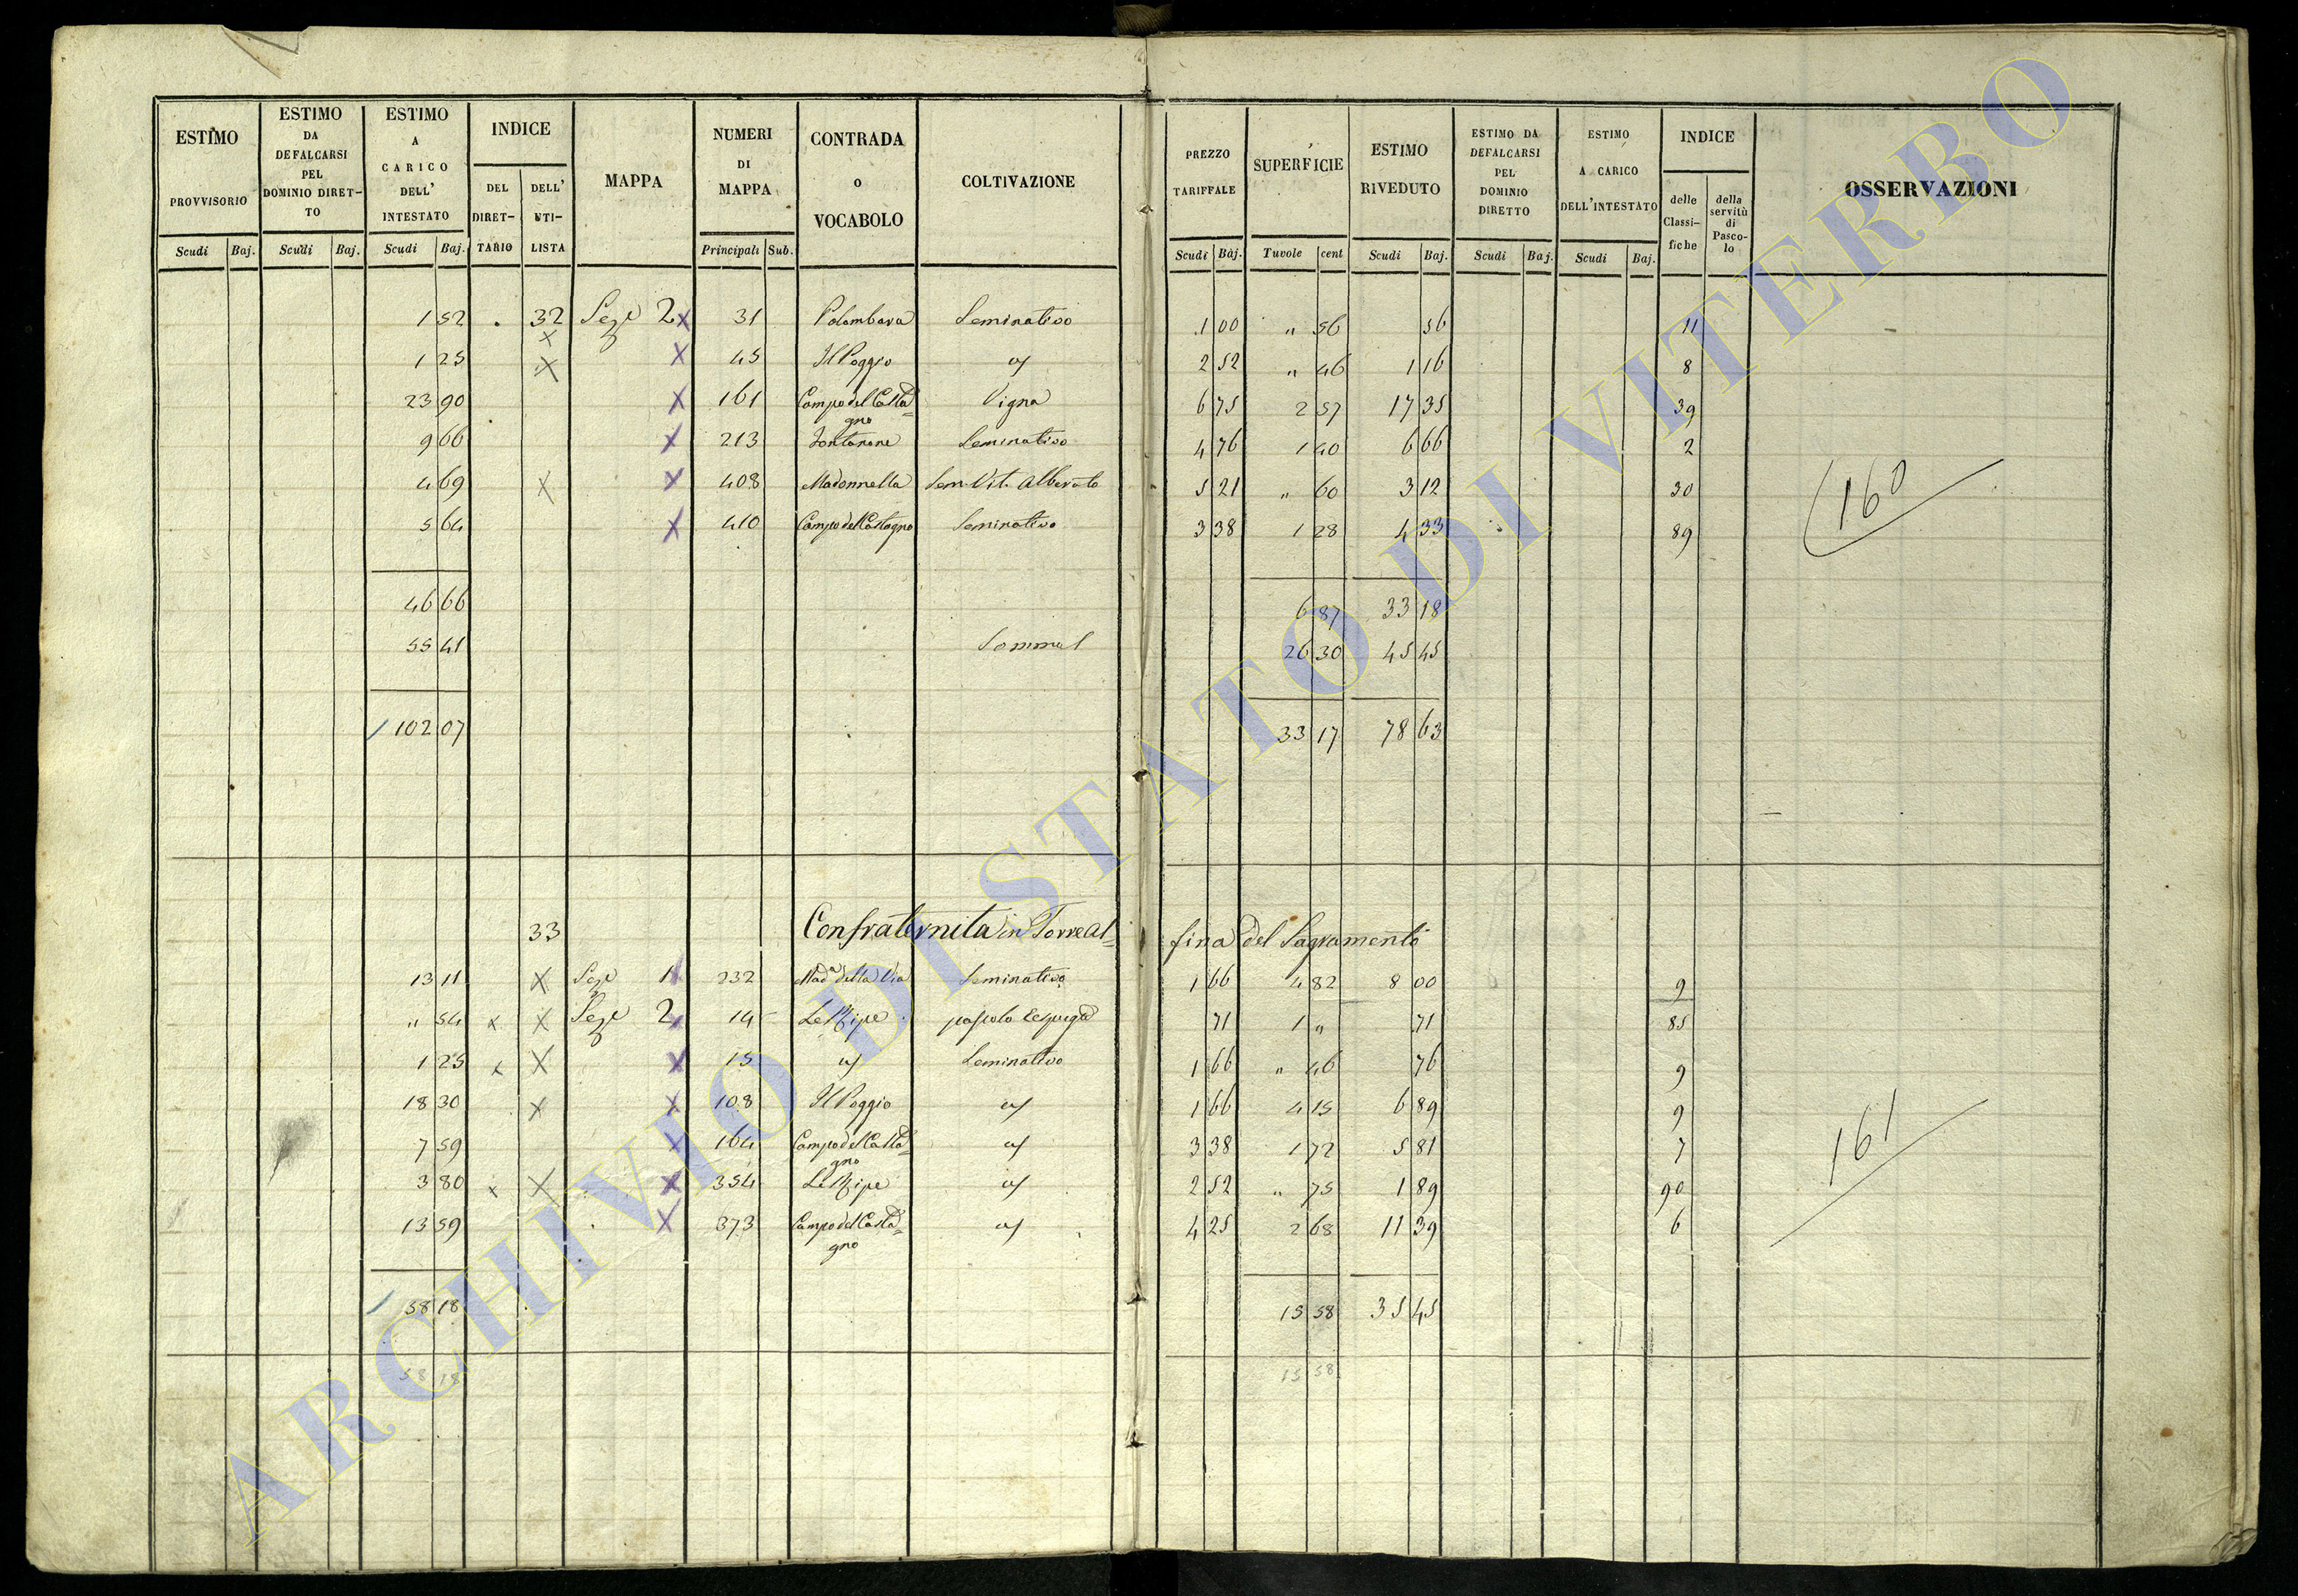 ESTIMO PROVVISORIO Scudi Baj.
ESTIMO DA DEFALCARSI PEL DOMINIO DIRET-TO Scudi Baj.
ESTIMO A CARICO DELL' INTESTATO Scudi Baj.
INDICE DEL DIRET-TARIO DELL' UTI-LISTA
MAPPA
NUMERI DI MAPPA Principali Sub.
CONTRADA o VOCABOLO
COLTIVAZIONE
PREZZO TARIFFALE Scudi Baj.
SUPERFICIE Tavole cent
ESTIMO RIVEDUTO Scudi Baj.
ESTIMO DA DEFALCARSI PEL DOMINIO DIRETTO Scudi Baj.
ESTIMO A CARICO DELL'INTESTATO Scudi Baj.
INDICE delle Classi-fiche della servitù di Pasco-lo
OSSERVAZIONI
1 52 32 Seze 2 x 31 Palombara Seminativo 1 00 " 56 56 11
x
1 25 x x 45 Il Poggio 2 52 " 46 1 16 8
23 90 x 161 Campo del Casta=gno Vigna 6 75 2 57 17 35 39
9 66 x 213 Fontanone Seminativo 4 76 1 40 6 66 2
4 69 x x 408 Madonnella Sem. Vit. Alberato 5 21 " 60 3 12 30
160
5 64 x 410 Campo del Castagno Seminativo 3 38 1 28 4 33 89
46 66 6 87 33 18
55 41 26 30 45 45
102 07 33 17 78 63
33 Confraternita in Torreal=fina del Sagramento
13 11 x 1 232 Mad.a della Via Seminativo 1 66 4 82 8 00 9
" 54 x x 2 14 Le Ripe pascolo 71 1 " 71 85
1 25 x x x 15 Seminativo 1 66 " 46 76 9
18 30 x x 108 Il Poggio 1 66 4 15 6 89 9
7 59 x 164 Campo del Casta=gno 3 38 1 72 5 81 7
161
3 80 x x x 354 Le Ripe 2 52 " 75 1 89 90
13 59 x 373 Campo del Casta=gno 4 25 2 68 11 39 6
58 18 15 58 35 45
58 18 15 58
ARCHIVIO DI STATO DI VITERBO